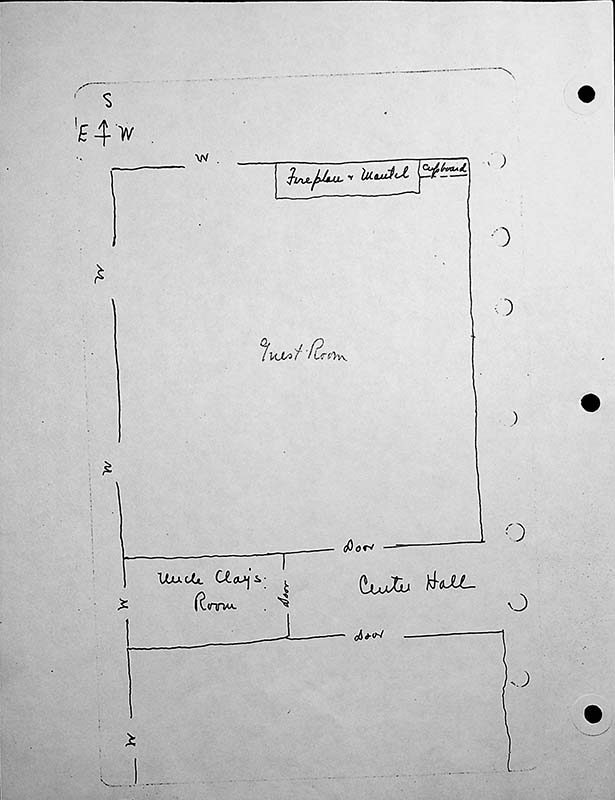 S
E W
W
Fireplace + Mantel
Cupboard
W
Guest Room
W
Door
Uncle Clay's
Room
Door
Center Hall
W
Door
W